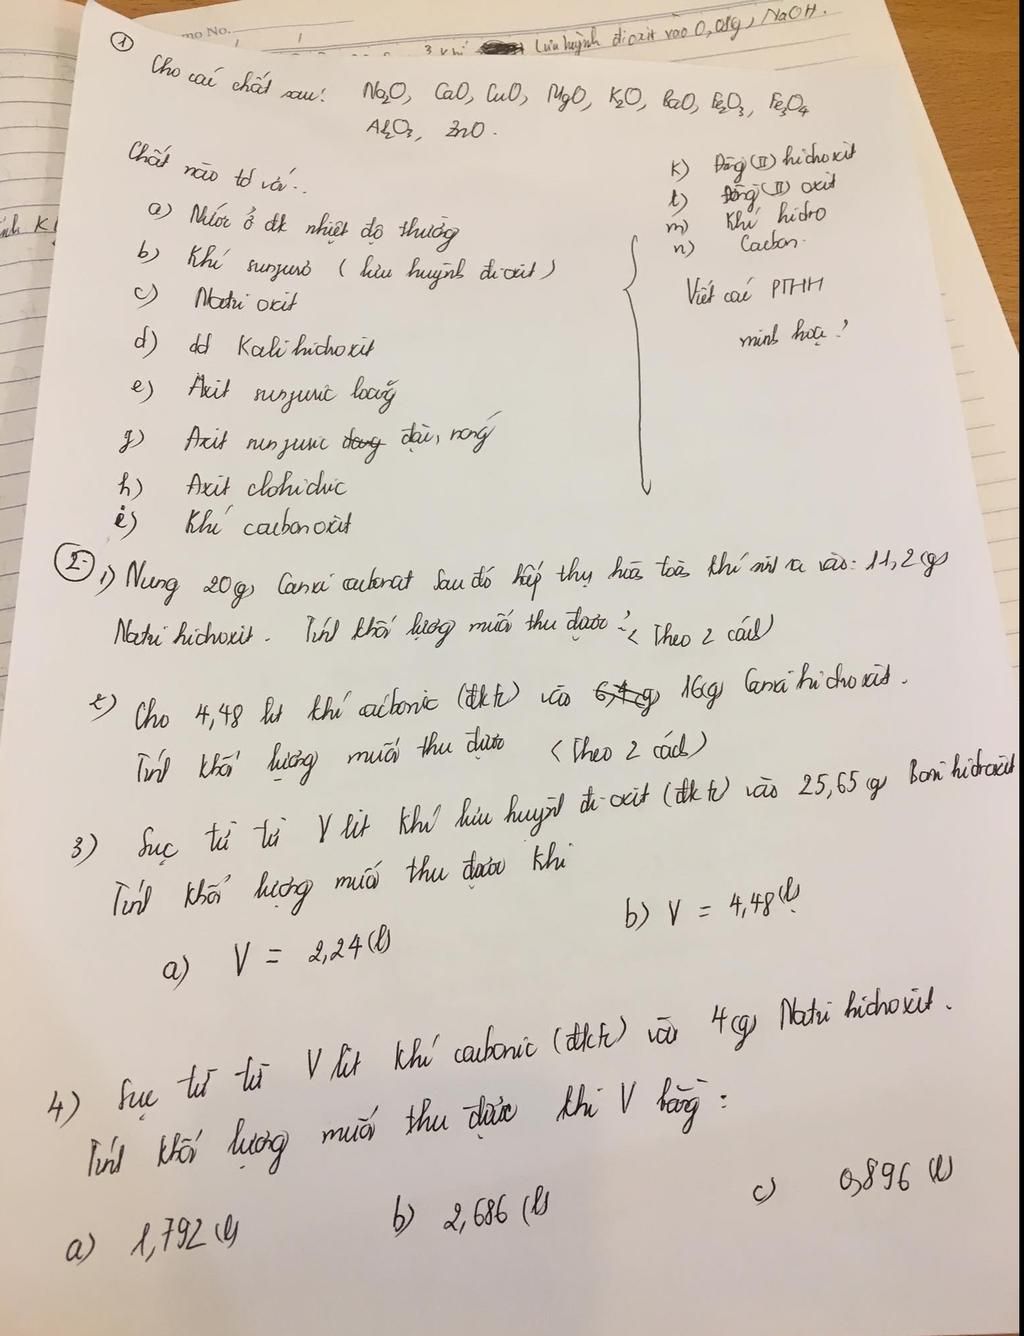 mo No.
3 khí lưu huỳnh đioxit vào 0,08g, NaOH.
①
Cho các chất sau: Na2O, CaO, CuO, MgO, K2O, BaO, Fe2O3, Fe3O4
Al2O3, ZnO.
Chất nào td với..
a) Nước ở đk nhiệt độ thường
b) Khí sunjurơ (lưu huỳnh đioxit)
c) Natri oxit
d) dd Kali hidroxit
e) Axit sunjuric loãng
g) Axit sunjuric đặc, nóng
h) Axit clohidric
i) Khí cacbon oxit
k) Đồng (II) hidroxit
l) Đồng (II) oxit
m) Khí hidro
n) Cacbon.
Viết các PTHH
minh hoạ?
② 1) Nung 20g Canxi cacbonat sau đó hấp thụ hoà toàn khí sinh ra vào: 11,2(g)
Natri hidroxit. Tính khối lượng muối thu được? < Theo 2 cách)
2) Cho 4,48 lít khí cacbonic (đktc) vào 6,4g 16(g) Canxi hidroxit.
Tính khối lượng muối thu được <Theo 2 cách)
3) Sục từ từ V lít khí lưu huỳnh đioxit (đktc) vào 25,65 g Bari hidroxit
Tính khối lượng muối thu được khi
a) V = 2,24 (l)
b) V = 4,48 (l)
4) Sục từ từ V lít khí cacbonic (đktc) vào 4(g) Natri hidroxit.
Tính khối lượng muối thu được khi V bằng:
a) 1,792 (l)
b) 2,686 (l)
c) 0,896 (l)